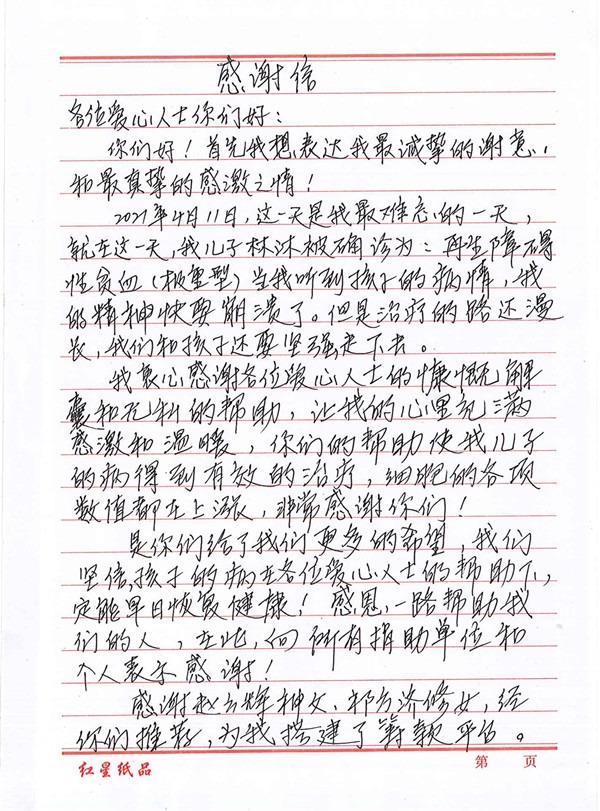 感谢信
各位爱心人士你们好：
你们好！首先我想表达我最诚挚的谢意，
和最真挚的感激之情！
2021年4月11日，这一天是我最难忘的一天，
就在这一天，我儿子林沐被确诊为：再生障碍
性贫血（极重型）当我听到孩子的病情，我
的精神快要崩溃了。但是治疗的路还漫
长，我们和孩子还要坚强走下去。
我衷心感谢各位爱心人士的慷慨解
囊和无私的帮助，让我的心里充满
感激和温暖，你们的帮助使我儿子
的病得到有效的治疗，细胞的各项
数值都在上涨，非常感谢你们！
是你们给了我们更多的希望，我们
坚信，孩子的病在各位爱心人士的帮助下，
定能早日恢复健康！感恩，一路帮助我
们的人，在此，向所有捐助单位和
个人表示感谢！
感谢赵 神父、祁 济修女，经
你们推荐，为我搭建了筹款平台。
红星纸品
第 页